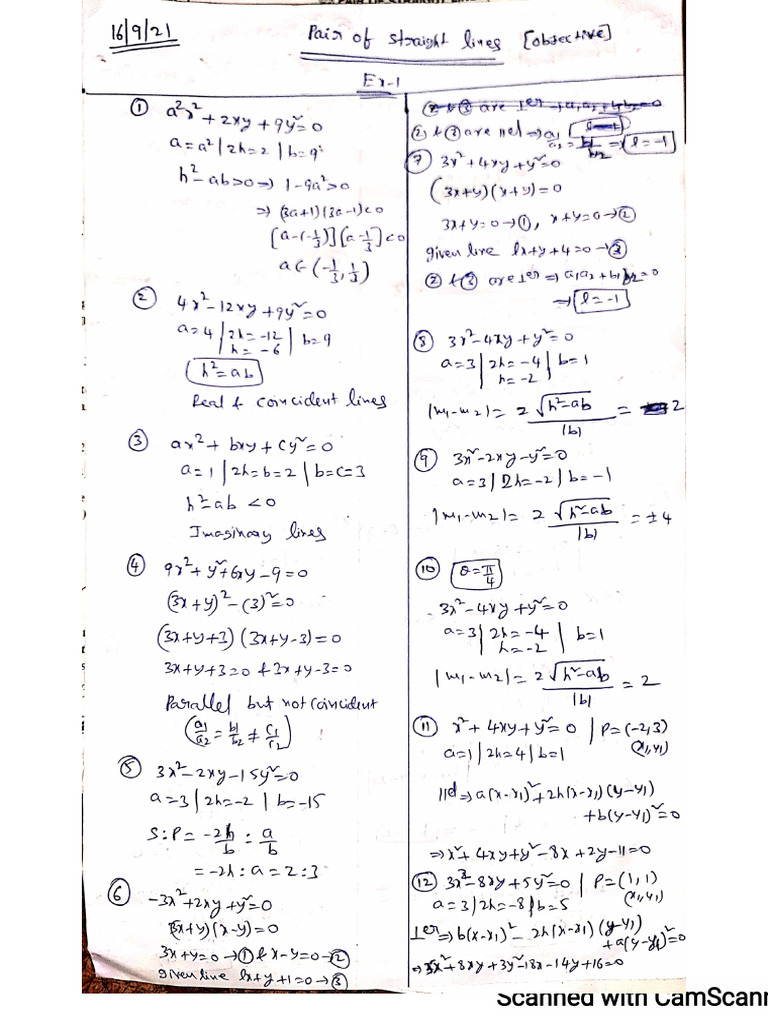 16/9/21
Pair of straight lines [objective]
Ex-1
① a²x²+2xy+9y²=0
a=a² | 2h=2 | b=9
h²-ab>0 ⇒ 1-9a²>0
⇒ (3a+1)(3a-1)<0
[a-(-1/3)][a-1/3]<0
a∈(-1/3, 1/3)
② 4x²-12xy+9y²=0
a=4 | 2h=-12 | b=9
h=-6
h²=ab
Real & coincident lines
③ ax²+bxy+cy²=0
a=1 | 2h=b=2 | b=c=3
h²-ab<0
Imaginary lines
④ 9x²+y²+6xy-9=0
(3x+y)²-(3)²=0
(3x+y+3)(3x+y-3)=0
3x+y+3=0 & 3x+y-3=0
Parallel but not coincident
(a1/a2 = b1/b2 ≠ c1/c2)
⑤ 3x²-2xy-15y²=0
a=3 | 2h=-2 | b=-15
S:P = -2h/b : a/b
= -2h:a = 2:3
⑥ -3x²+2xy+y²=0
(3x+y)(x-y)=0
3x+y=0→① & x-y=0→②
given line lx+y+1=0→③
② & ③ are ⊥er ⇒ a1a2+b1b2=0
② & ③ are ||el ⇒ a1/a2 = b1/b2 ⇒ l=-1
⑦ 3x²+4xy+y²=0
(3x+y)(x+y)=0
3x+y=0→①, x+y=0→②
given line lx+y+4=0→③
② & ③ are ⊥er ⇒ a1a2+b1b2=0
⇒ l=-1
⑧ 3x²-4xy+y²=0
a=3 | 2h=-4 | b=1
h=-2
|m1-m2| = 2√(h²-ab)/|b| = 2
⑨ 3x²-2xy-y²=0
a=3 | 2h=-2 | b=-1
|m1-m2| = 2√(h²-ab)/|b| = ±4
⑩ θ=π/4
3x²-4xy+y²=0
a=3 | 2h=-4 | b=1
h=-2
|m1-m2| = 2√(h²-ab)/|b| = 2
⑪ x²+4xy+y²=0 | P=(-2,3)
a=1 | 2h=4 | b=1 (x1,y1)
||el ⇒ a(x-x1)²+2h(x-x1)(y-y1)
+b(y-y1)²=0
⇒ x²+4xy+y²-8x+2y-11=0
⑫ 3x²-8xy+5y²=0 | P=(1,1)
a=3 | 2h=-8 | b=5 (x1,y1)
⊥er ⇒ b(x-x1)²-2h(x-x1)(y-y1)
+a(y-y1)²=0
⇒ 5x²+8xy+3y²-18x-14y+16=0
Scanned with CamScann